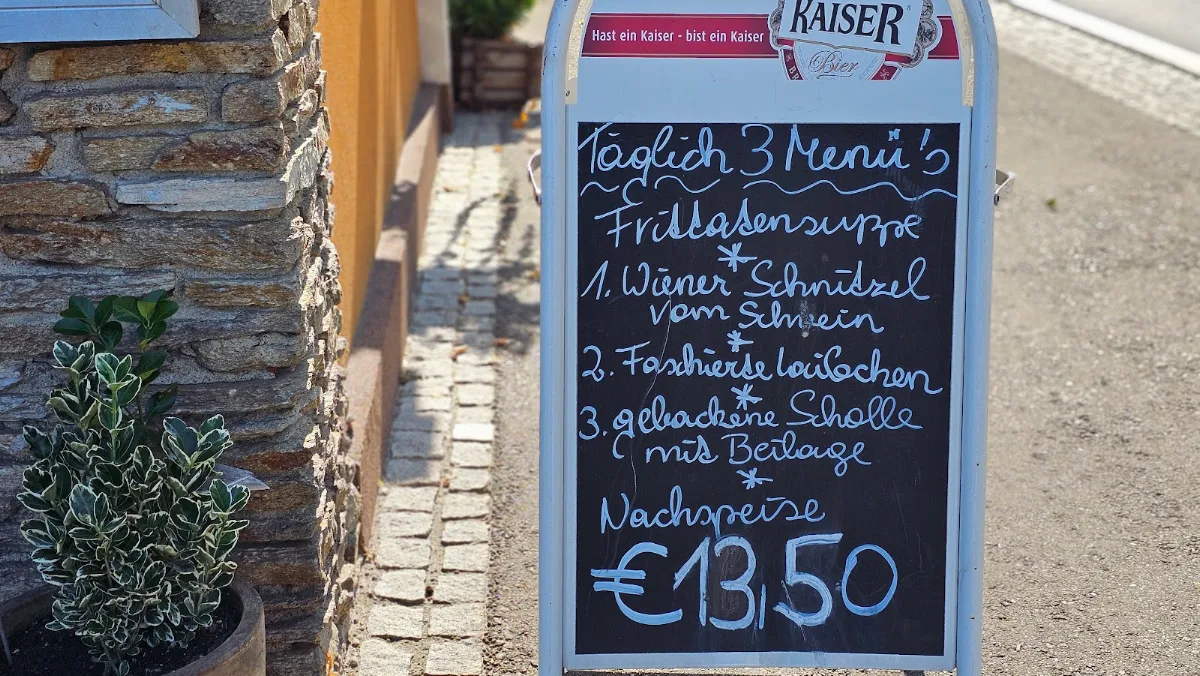 Hast ein Kaiser - bist ein Kaiser
KAISER
Bier
Täglich 3 Menü's
Frittatensuppe
*
1. Wiener Schnitzel
vom Schwein
*
2. Faschierte Laifachen
*
3. gebackene Scholle
mit Beilage
*
Nachspeise
€13,50